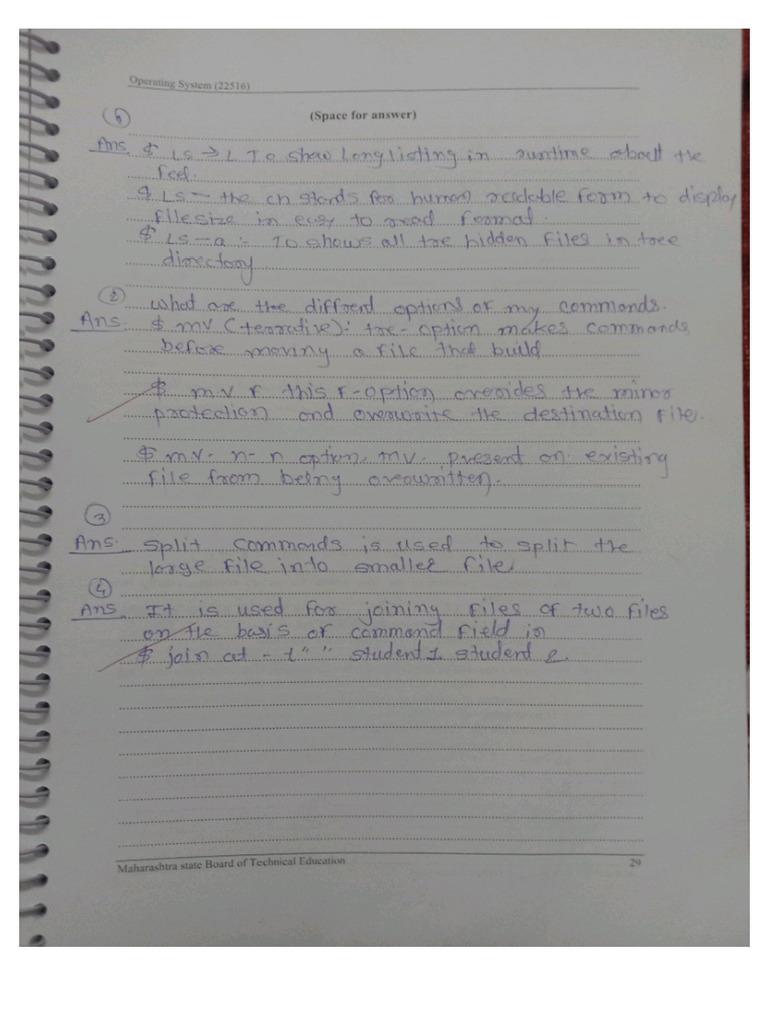 Operating System (22516)
(Space for answer)
①
Ans $ Ls → L To show long listing in runtime about the
$ Ls – the ch stands for human readable form to display
file size in easy to read format.
$ Ls – a :- To shows all the hidden files in tree
directory
② What are the diffrend options of my commands.
Ans. $ mv (terrative): the - option makes commands
before moving a file that build
$ mv F this F-option overides the minor
protection and overwrite the destination file.
$ mv. n- n option, mv. present on existing
file from being overwritten.
③
Ans. Split commands is used to split the
large file into smaller file
④
Ans It is used for joining files of two files
on the basis of command field in
$ join at - t " " student 1 student 2.
Maharashtra state Board of Technical Education
29